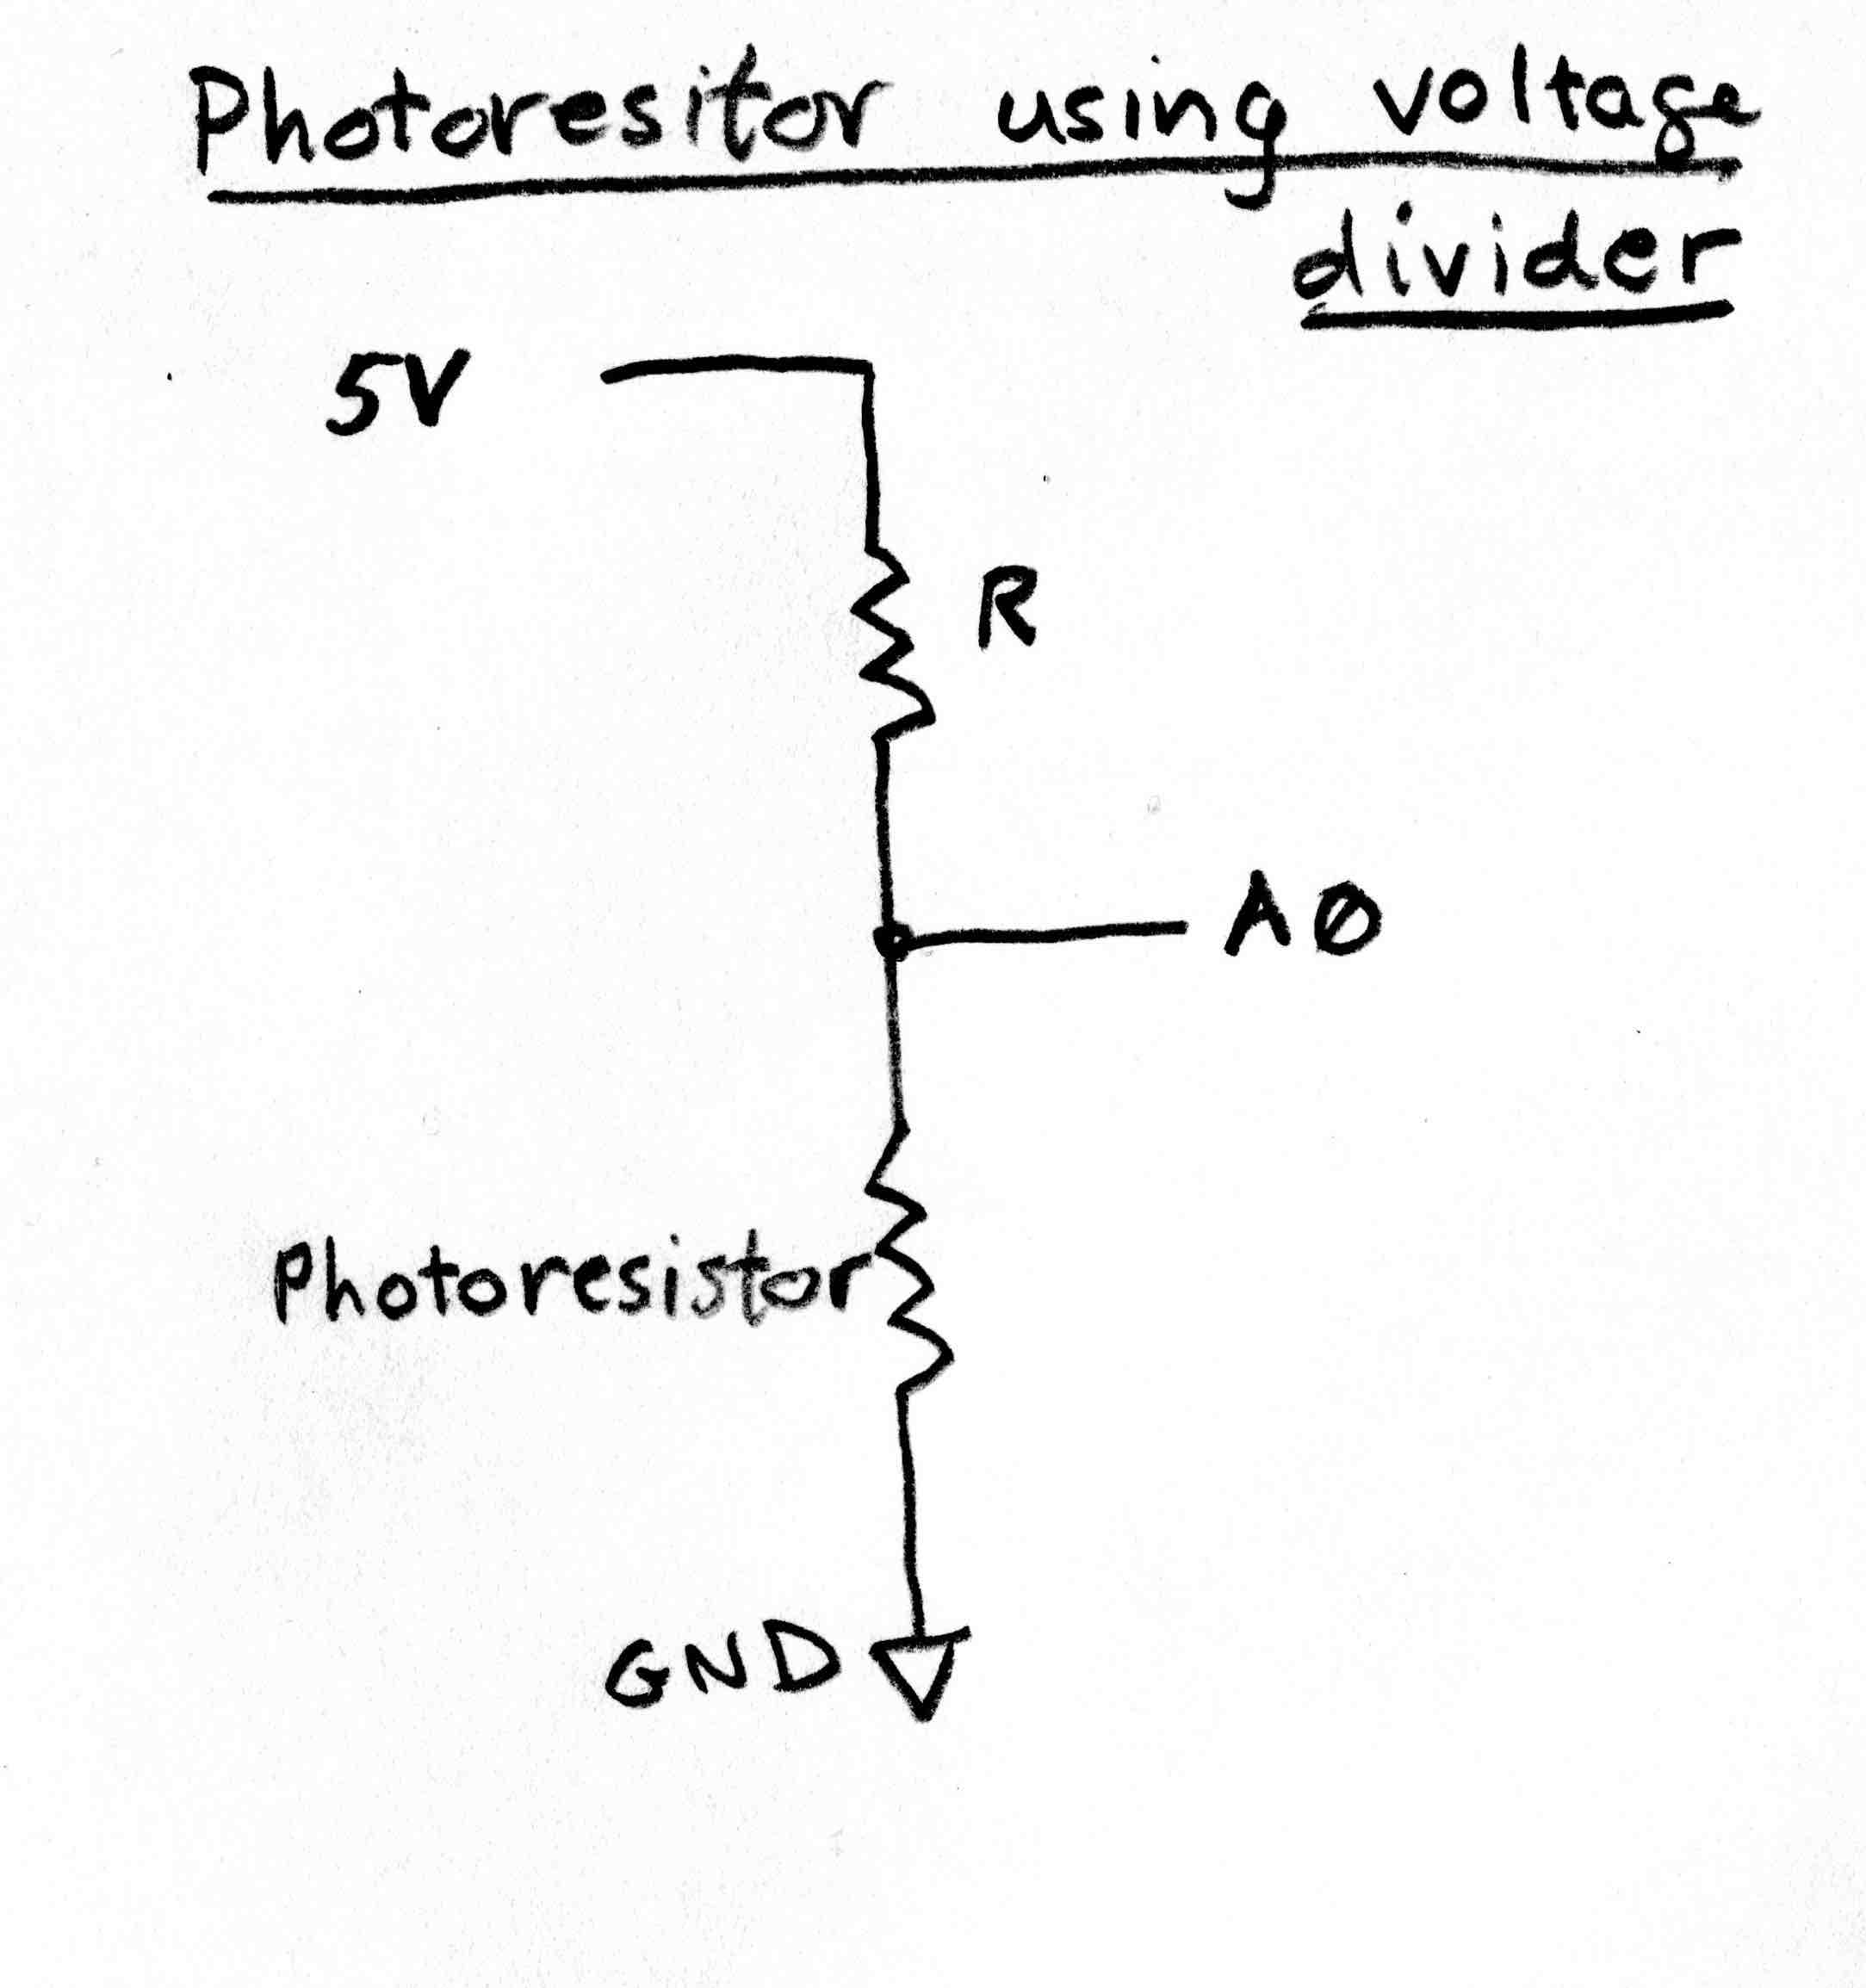 Photoresitor using voltage
divider
5V
R
AØ
Photoresistor
GND